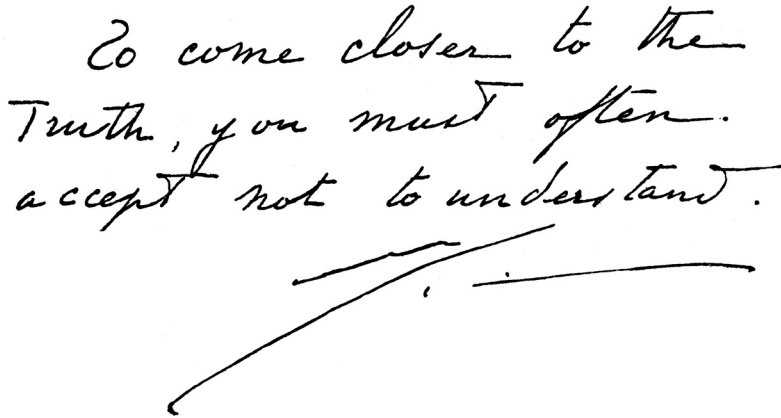 To come closer to the
Truth, you must often
accept not to understand.